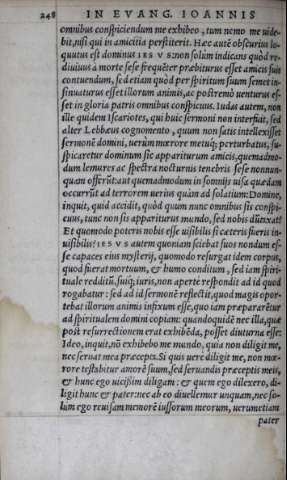 248 IN EVANG. IOANNIS
omnibus conspiciendum me exhibeo, tum nemo me uide-
bit, nisi qui in amicitia perstiterit. Hæc autē obscurius lo-
quutus est dominus IESVS: non solùm indicans quòd re-
diuiuus à morte sese frequēter præbiturus esset amicis suis
contuendum, sed etiam quòd per spiritum suum semet in-
sinuaturus esset illorum animis, ac postremò uenturus es-
set in gloria patris omnibus conspicuus. Iudas autem, non
ille quidem Iscariotes, qui huic sermoni non interfuit, sed
alter Lebbæus cognomento, quum non satis intellexisset
sermonē domini, uerùm mœrore metuq; perturbatus, su-
spicaretur dominum sic appariturum amicis, quemadmo-
dum lemures ac spectra nocturnis tenebris sese nonnun-
quam offerūt: aut quemadmodum in somnijs uisa quædam
occurrūt ad terrorem uerius quàm ad solatium: Domine,
inquit, quid accidit, quòd quum nunc omnibus sis conspi-
cuus, tunc non sis appariturus mundo, sed nobis dūtaxat?
Et quomodo poteris nobis esse uisibilis si cæteris fueris in-
uisibilis? IESVS autem quoniam sciebat suos nondum es-
se capaces eius mysterij, quomodo resurgat idem corpus,
quod fuerat mortuum, & humo conditum, sed iam spiri-
tuale redditū, suiq; iuris, non apertè respondit ad id quod
rogabatur: sed ad id sermonē reflectit, quod magis opor-
tebat illorum animis infixum esse, quo iam præpararētur
ad spiritualem domini copiam: quandoquidē nec illa, quæ
post resurrectionem erat exhibēda, posset diuturna esse:
Ideo, inquit, nō exhibebo me mundo, quia non diligit me,
nec seruat mea præcepta. Si quis uerè diligit me, non mœ-
rore testabitur amorē suum, sed seruandis præceptis meis,
& hunc ego uicissim diligam: & quem ego dilexero, di-
ligit hunc & pater: nec ab eo diuellemur unquam, nec so-
lùm ego reuisam memorē iussorum meorum, uerumetiam
pater